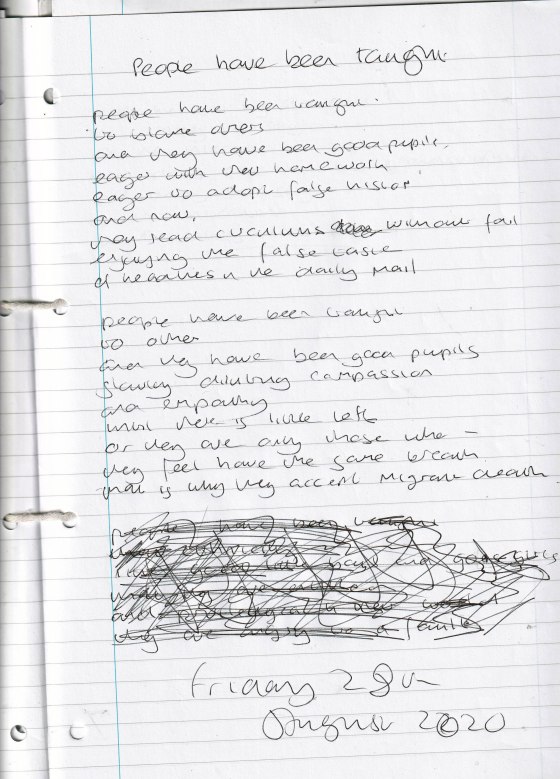 People have been taught
people have been taught
to blame others
and they have been good pupils,
eager with their homework
eager to adopt false history
and now,
they read curriculums without fail
enjoying the false taste
of headlines in the daily mail
people have been taught
to other
and they have been good pupils
slowly diluting compassion
and empathy
until there is little left
or they are only those who –
they feel have the same breath
that is why they accept migrant death.
people have been taught
Friday 28th
August 2020